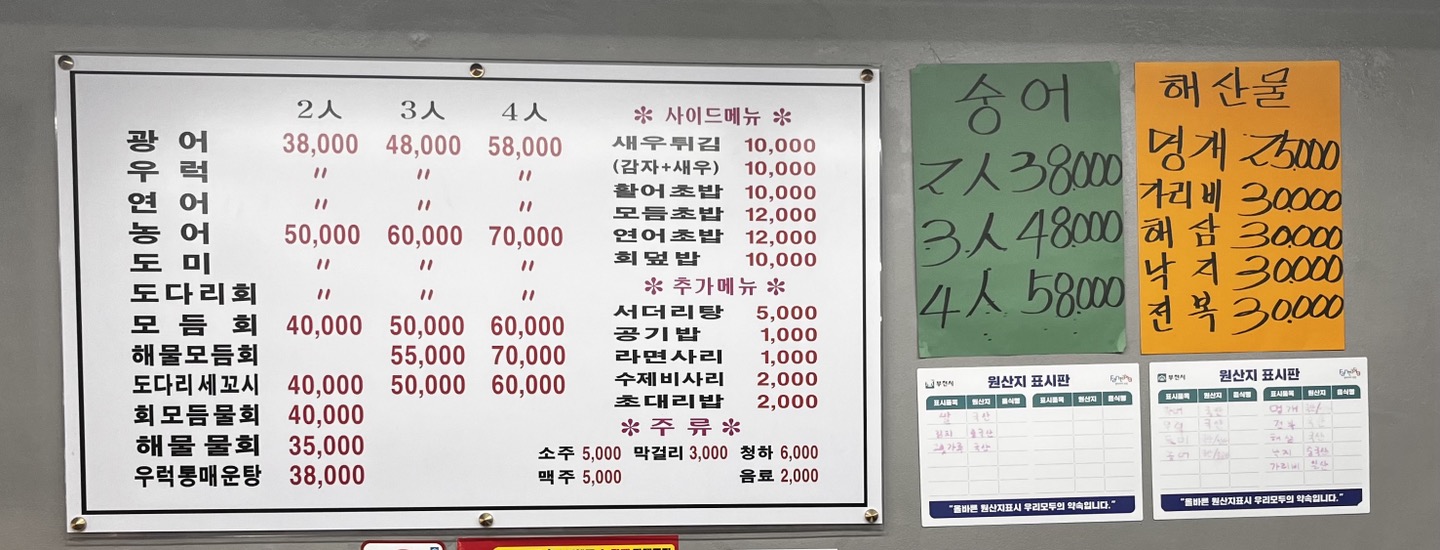 2人 3人 4人
광 어 38,000 48,000 58,000
우 럭 〃 〃 〃
연 어 〃 〃 〃
농 어 50,000 60,000 70,000
도 미 〃 〃 〃
도다리회 〃 〃 〃
모 듬 회 40,000 50,000 60,000
해물모듬회 55,000 70,000
도다리세꼬시 40,000 50,000 60,000
회모듬물회 40,000
해물 물회 35,000
우럭통매운탕 38,000
✻ 사이드메뉴 ✻
새우튀김 10,000
(감자+새우) 10,000
활어초밥 10,000
모듬초밥 12,000
연어초밥 12,000
회덮밥 10,000
✻ 추가메뉴 ✻
서더리탕 5,000
공기밥 1,000
라면사리 1,000
수제비사리 2,000
초대리밥 2,000
✻ 주 류 ✻
소주 5,000 막걸리 3,000 청하 6,000
맥주 5,000 음료 2,000
숭어
2人 38,000
3人 48,000
4人 58,000
해산물
멍게 25,000
가리비 30,000
해삼 30,000
낙지 30,000
전복 30,000
부천시 원산지 표시판
표시품목 원산지 음식별 표시품목 원산지 음식별
쌀 국산
"올바른 원산지표시 우리모두의 약속입니다."
부천시 원산지 표시판
표시품목 원산지 음식별 표시품목 원산지 음식별
멍게
전복
해삼
낙지 중국산
가리비 일산
"올바른 원산지표시 우리모두의 약속입니다."